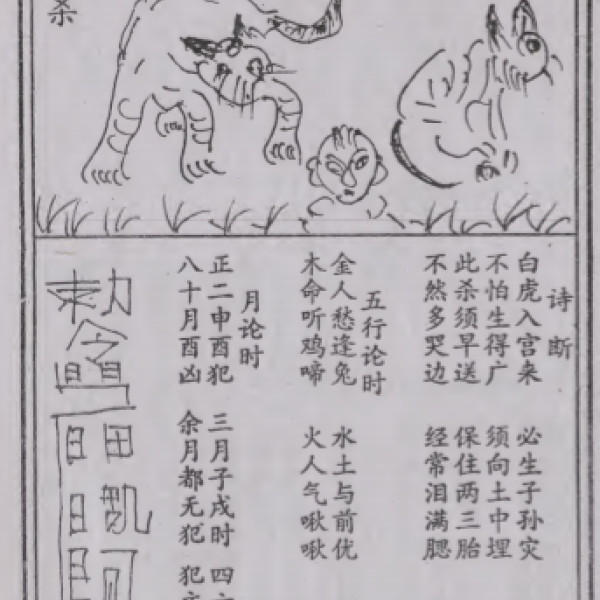 杀
诗断
白虎入宫来 必生子孙灾
不怕生得广 须向土中埋
此杀须早送 保住两三胎
不然多哭边 经常泪满腮
五行论时
金人愁逢兔 水土与前优
木命听鸡啼 火人气啾啾
月论时
正二申酉犯 三月子戌时 四
八十月酉凶 余月都无犯 犯
敕令